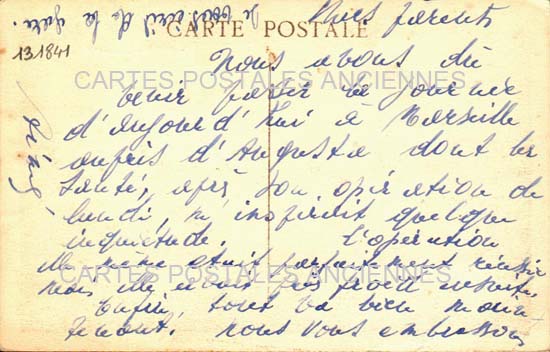 Je vous écris de la gare.
Chers parents
CARTE POSTALE
131841
Nous avons dû
CARTES POSTALES ANCIENNES
venir passer la journée
d'aujourd'hui à Marseille
auprès d'Augusta dont la
santé, après son opération de
lundi, m'inspirait quelque
inquiétude. L'opération
elle même était parfaitement réussie
CARTES POSTALES ANCIENNES
mais elle avait pas
Enfin, tout va bien main
tenant. Nous vous embrassons